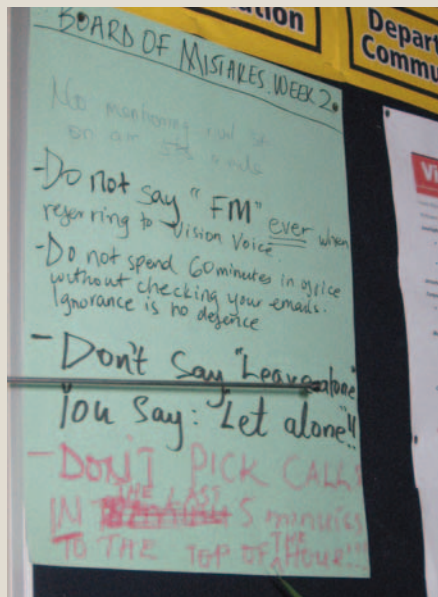 ation
Depart
Commu
BOARD OF
MISTAKES. WEEK 2.
No mentioning
on air
- Do not say "FM"
ever when
referring to Vision Voice
- Do not spend 60 minutes in office
without checking your emails.
Ignorance is no defence
- Don't say "Leave alone"
You say: "Let alone"!
- DON'T PICK CALLS
IN THE LAST 5 minutes
TO THE TOP OF THE HOUR!!!
Vi